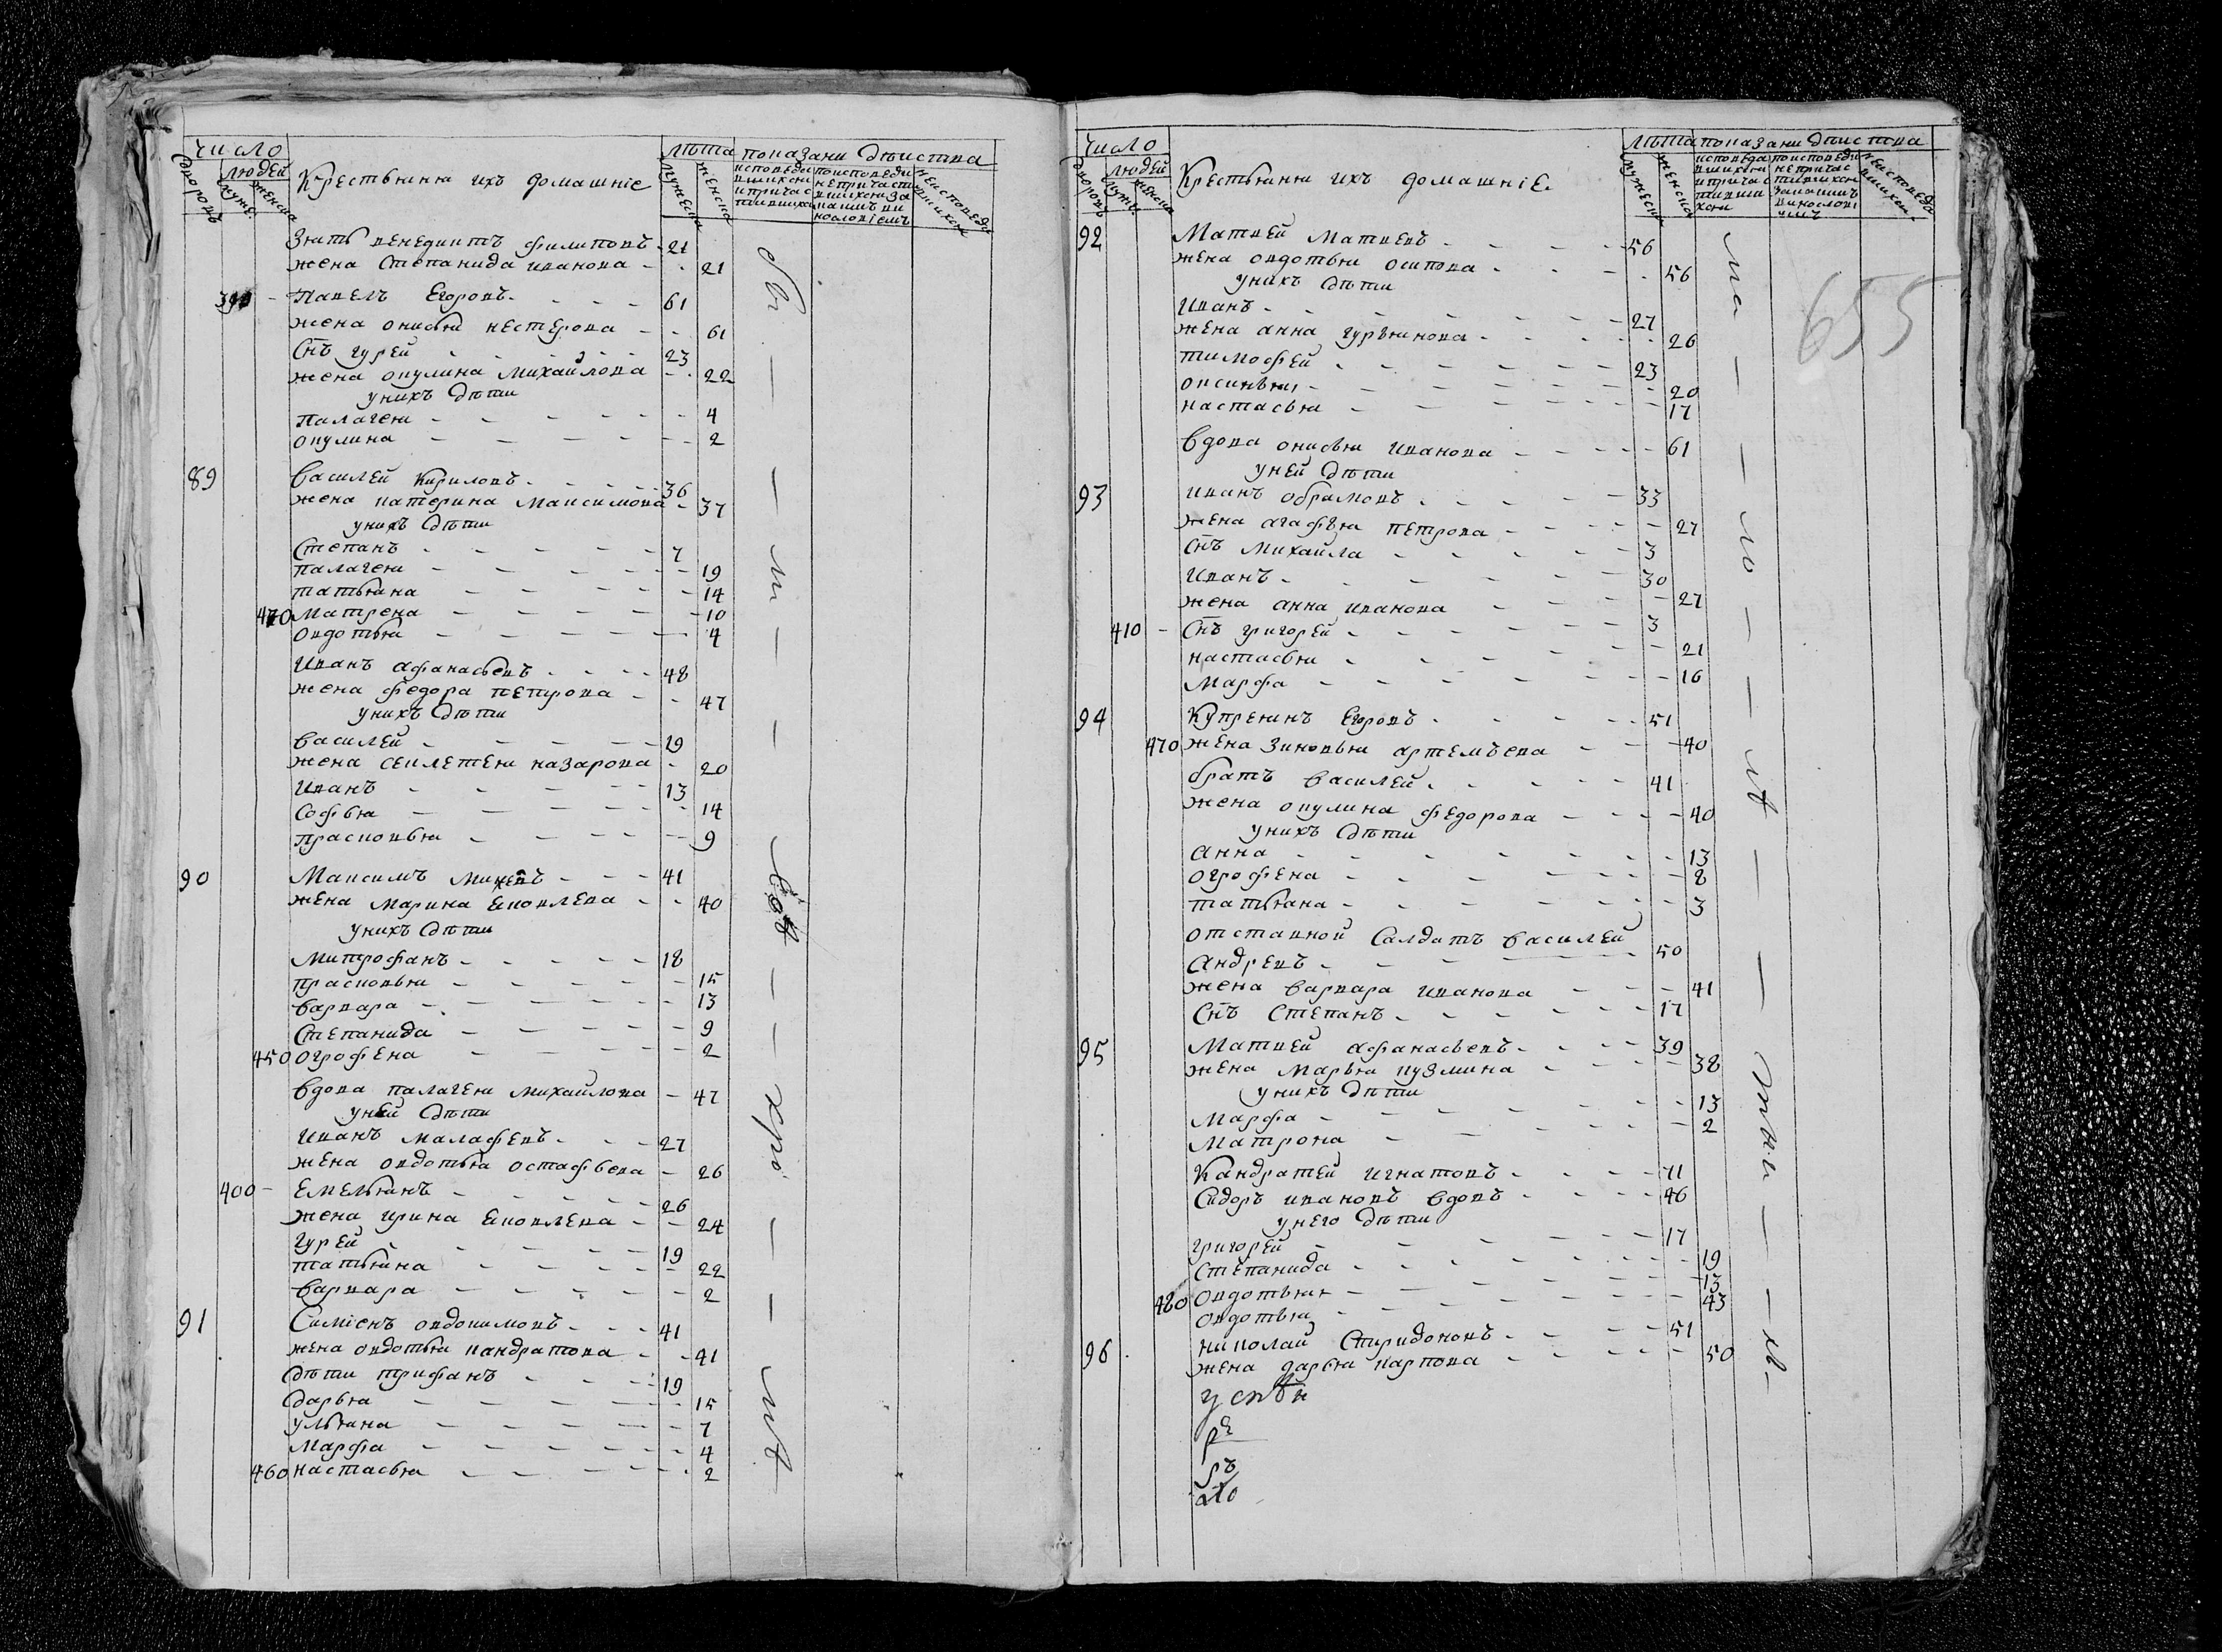 число
людей
дворовъ
муже.
женска
Крестьяня ихъ домашніе
лѣта
мужеска
женска
показани дѣиства
Зять венедиктъ филиповъ - 21
жена Степанида иванова - 21
390 - Павелъ Егоровъ - 61
жена онисья нестерова - 61
Снъ гурей - 23
жена окулина михайлова - 22
у нихъ дѣти
палагея - 4
окулина - 2
89 Василей Кириловъ - 36
жена катерина Максимова - 37
у нихъ дѣти
Степанъ - 7
палагея - 19
татьяна - 14
440 Матрена - 10
овдотья - 4
Иванъ афанасьевъ - 48
жена федора петрова - 47
у нихъ дѣти
Василей - 19
жена секлетея назарова - 20
Иванъ - 13
Софья - 14
прасковья - 9
90 Максимъ михеевъ - 41
жена марина яковлева - 40
у нихъ дѣти
Митрофанъ - 18
прасковья - 15
варвара - 13
Степанида - 9
450 огрофена - 2
вдова палагея михайлова - 47
у ней дѣти
Иванъ малафевъ - 27
жена овдотья остафьева - 26
400 - Емельянъ - 26
жена ирина яковлева - 24
гурей - 19
татьяна - 22
варвара - 2
91 Симіенъ овдокимовъ - 41
жена овдотья кандратова - 41
дѣти трифанъ - 19
дарья - 15
ульяна - 7
Марфа - 4
460 настасья - 2
число
людей
дворовъ
муже.
женска
Крестьяня ихъ домашніе
лѣта
мужеска
женска
показани дѣиства
655
92 Матвей Матвевъ - 56
жена овдотья осипова - 56
у нихъ дѣти
Иванъ - 27
жена анна гурьянова - 26
тимофей - 23
оксинья - 20
настасья - 17
вдова онисья иванова - 61
у ней дѣти
93 Иванъ обрамовъ - 33
жена агафья петрова - 27
Снъ михайла - 3
Иванъ - 30
жена анна иванова - 27
410 - Снъ григорей - 3
настасья - 21
Марфа - 16
94 Купреянъ Егоровъ - 51
470 жена зиновья артемьева - 40
братъ василей - 41
жена окулина федорова - 40
у нихъ дѣти
анна - 13
огрофена - 8
татьяна - 3
отставной Салдатъ василей
андревъ - 50
жена варвара иванова - 41
Снъ Степанъ - 17
95 Матвей афанасьевъ - 39
жена марья кузмина - 38
у нихъ дѣти
Марфа - 13
Матрона - 2
Кандратей игнатовъ - 71
Сидоръ ивановъ вдовъ - 46
у него дѣти
григорей - 17
Степанида - 19
480 овдотья - 13
овдотья - 43
96 николай Спиридоновъ - 51
жена дарья карпова - 50